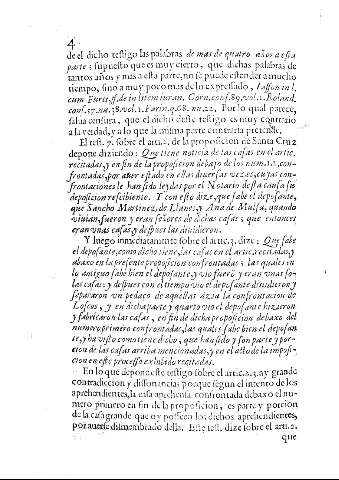 4
de el dicho testigo las palabras de mas de quatro años a esta
parte: supuesto que es muy cierto, que dichas palabras de
tantos años y mas a esta parte, no se puede estender a mucho
tiempo, sino a muy poco mas de lo expressado, Iasson in l.
cum Furis, ff. de in litem iuran. Corn. conf. 89. vol. 1. Roland.
conf. 57. nu. 38. vol. 1. Farin. q. 68. nu. 22. Por lo qual parece,
salua censura, que el dicho deste testigo es muy contrario
a la verdad, y a lo que la misma parte contraria pretende.
El test. 7. sobre el artic. 2. de la proposicion de Santa Cruz
depone diziendo: Que tiene noticia de las casas en el artic.
recitadas, y en fin de la proposicion debaxo de los num. 1. 2. con-
frontadas, por auer estado en ellas diuersas vezes, cuyas con-
frontaciones le han sido leydas por el Notario desta causa su
deposicion recibiente. Y con esto dize, que sabe el deposante,
que Sancho Martinez, de Llanes, y Ana de Mulsa, quando
viuian, fueron y eran señores de dichas casas; que entonces
eran vnas casas, y despues las diuidieron.
Y luego inmediatamente sobre el artic. 3. dize: Que sabe
el deposante, como dicho tiene, las casas en el artic. recitadas, y
abaxo en la presente proposicion confrontadas; las quales en
lo antiguo sabe bien el deposante, y vio fueron y eran vnas so-
las casas: y despues con el tiempo vio el deposante diuidieron y
separaron vn pedaço de aquellas àzia la confrontacion de
Loscos, y en dicha parte y quarto vio el deposante hizieron
y fabricaron las casas, en fin de dicha proposicion debaxo del
numero primero confrontadas, las quales sabe bien el deposan-
te, y ha visto como tiene dicho, que han sido y son parte y por-
cion de las casas arriba mencionadas, y en el acto de la imposi-
cion en este processo exhibido recitadas.
En lo que depone este testigo sobre el artic. 2. 3. ay grande
contradiccion y dissonancia; porque segun el intento de los
aprehendientes, la casa aprehensa confrontada debaxo el nu-
mero primero en fin de la proposicion, es parte y porcion
de la casa grande que oy posseen los dichos aprehendientes,
por auerse dismembrado della. Este test. dize sobre el arti. 2.
que